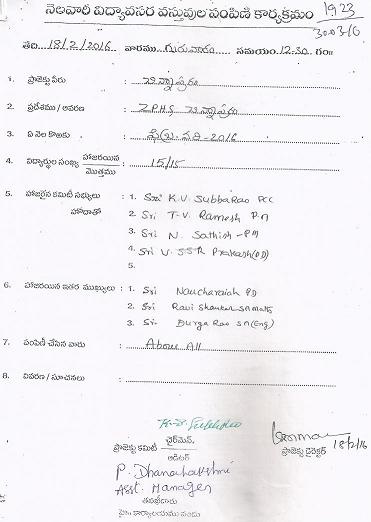 నెలవారీ విద్యావసర వస్తువుల పంపిణీ కార్యక్రమం 1923
తేది 18/2/2016 వారము గురువారం సమయం 12-30 గం॥
1. ప్రాజెక్టు పేరు :
2. ప్రదేశము / ఆవరణ : ZPHS
3. ఏ నెల కొఱకు : ఫిబ్రవరి-2016
4. విద్యార్థుల సంఖ్య హాజరయిన / మొత్తము : 15/15
5. హాజరైన కమిటీ సభ్యులు హోదాతో : 1. Sri K.V. Subba Rao PCC
2. Sri T.V. Ramesh P.M
3. Sri N. Sathish - PM
4. Sri V. SSR Prakash (PD)
5.
6. హాజరయిన ఇతర ముఖ్యులు : 1. Sri Naucharaiah PD
2. Sri Ravi Shankar SA Maths
3. Sri. Durga Rao SA (Eng)
7. పంపిణీ చేసిన వారు : Above All
8. వివరణ / సూచనలు :
ప్రాజెక్టు కమిటీ ఛైర్మెన్ / ఆడిటర్
ప్రాజెక్టు డైరెక్టర్ 18/2/16
P. Dhanalakshmi
Asst. Manager
తనిఖీదారు